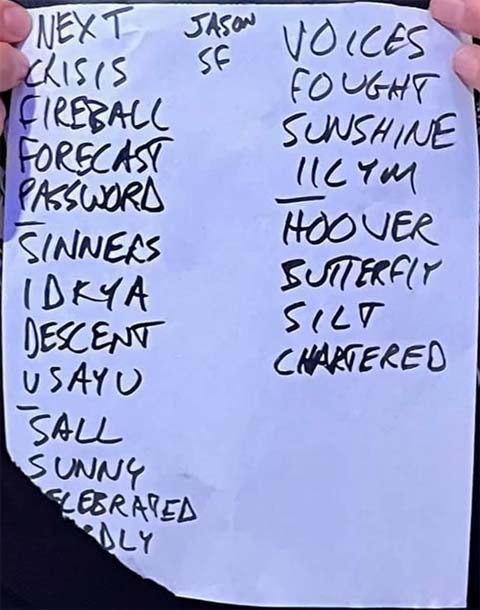 NEXT
CRISIS
FIREBALL
FORECAST
PASSWORD
SINNERS
IDKYA
DESCENT
USAYU
SALL
SUNNY
ELEBRATED
DLY
JASON
SF
VOICES
FOUGHT
SUNSHINE
IICYM
HOOVER
BUTTERFLY
SILT
CHARTERED